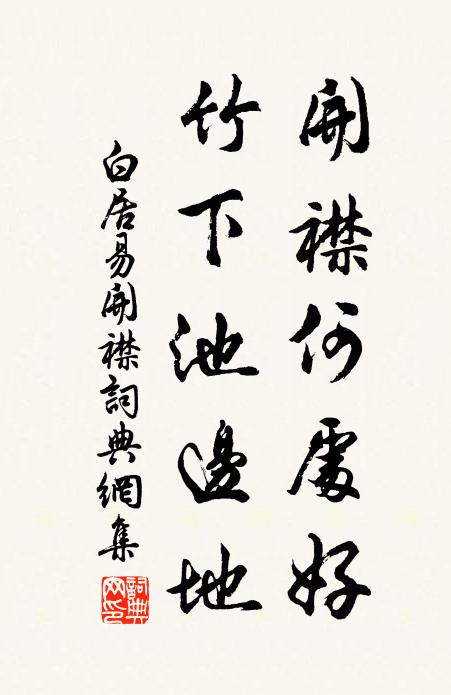 開襟何處好
竹下池邊地
白居易開襟詞典網集
詞典網印